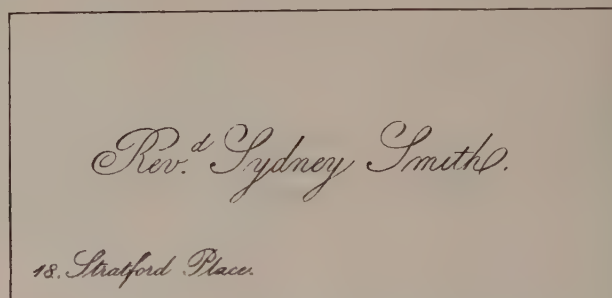 Rev.d Sydney Smith.
18. Stratford Place.